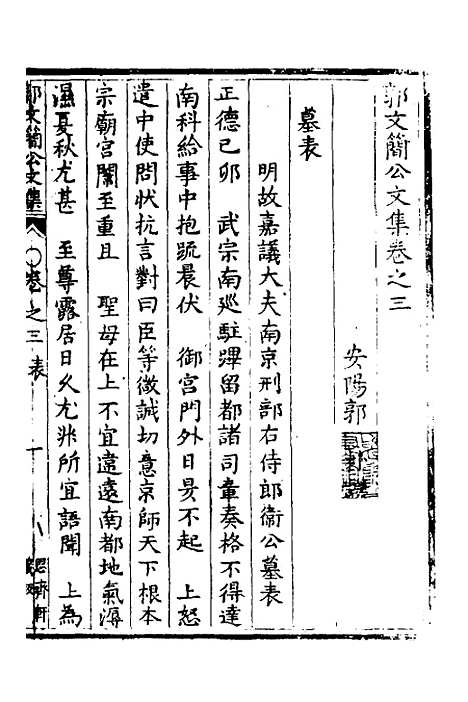 郭文簡公文集卷之三
安陽郭
墓表
明故嘉議大夫南京刑部右侍郎衞公墓表
正德己卯 武宗南巡駐蹕留都諸司章奏格不得達
南科給事中抱疏晨伏 御宮門外日昃不起 上怒
遣中使問狀抗言對曰臣等微誠切意京師天下根本
宗廟宮闈至重且 聖母在上不宜遠遠南都地氣溽
濕夏秋尤甚 至尊露居日久尤非所宜語聞 上為
郭文簡公文集 卷之三 表